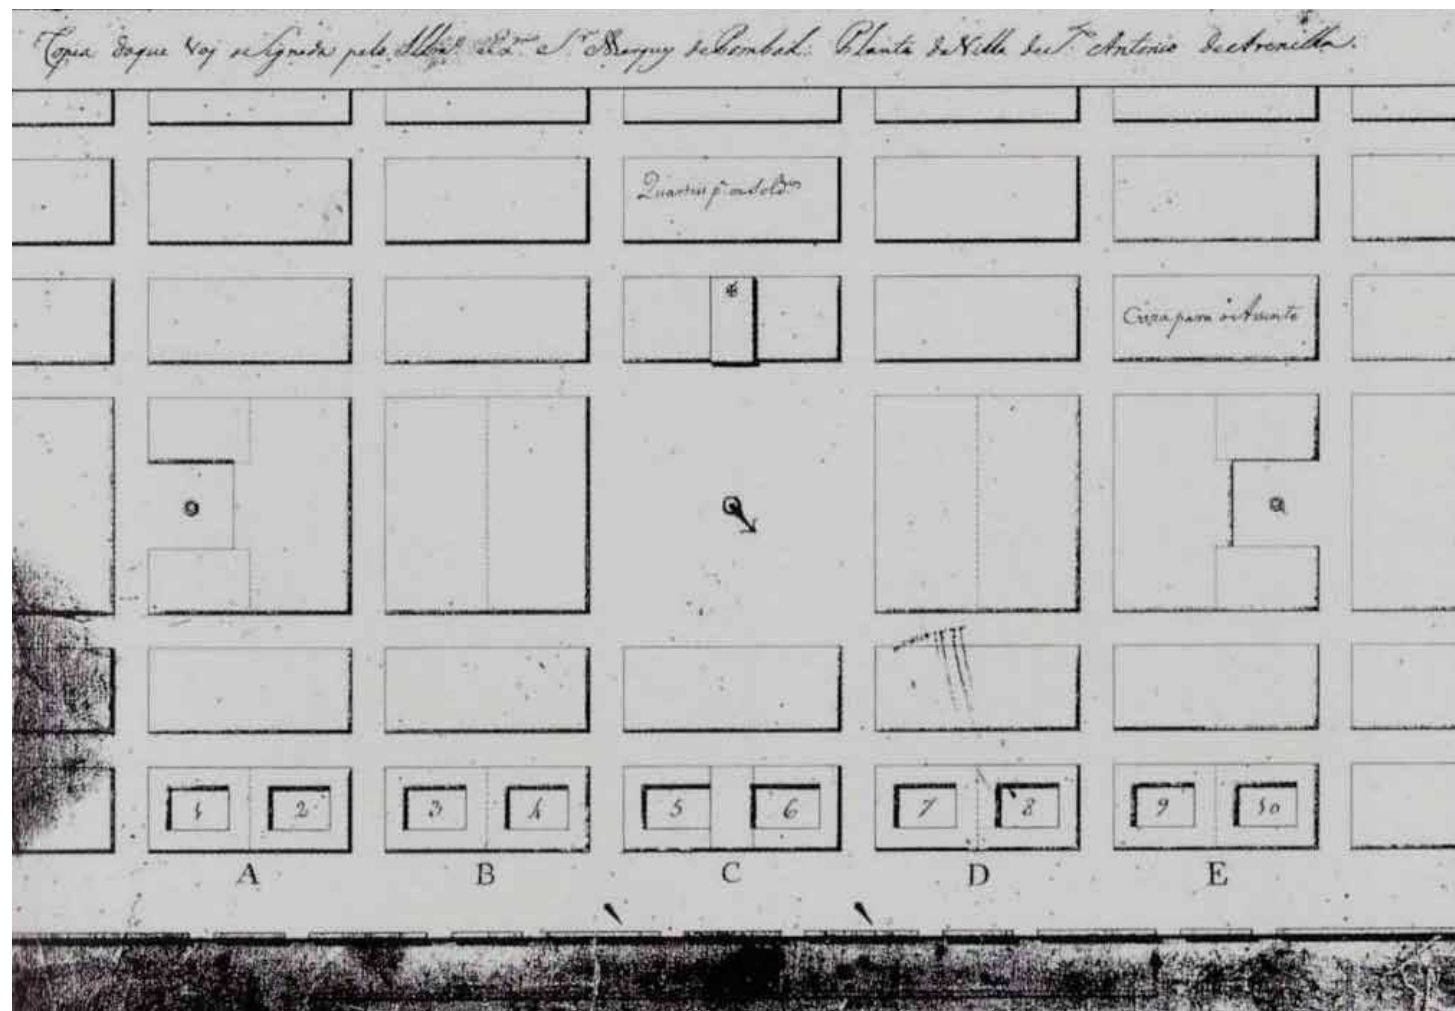 Copia daque vaj asignada pelo Illmo. Exmo. Sr. Marquy de Pombal. Planta da Villa de Sto. Antonio de Arenilla.
Quarteis pa. os Soldos
Caza para o Assento
1 2 3 4 5 6 7 8 9 10
A B C D E